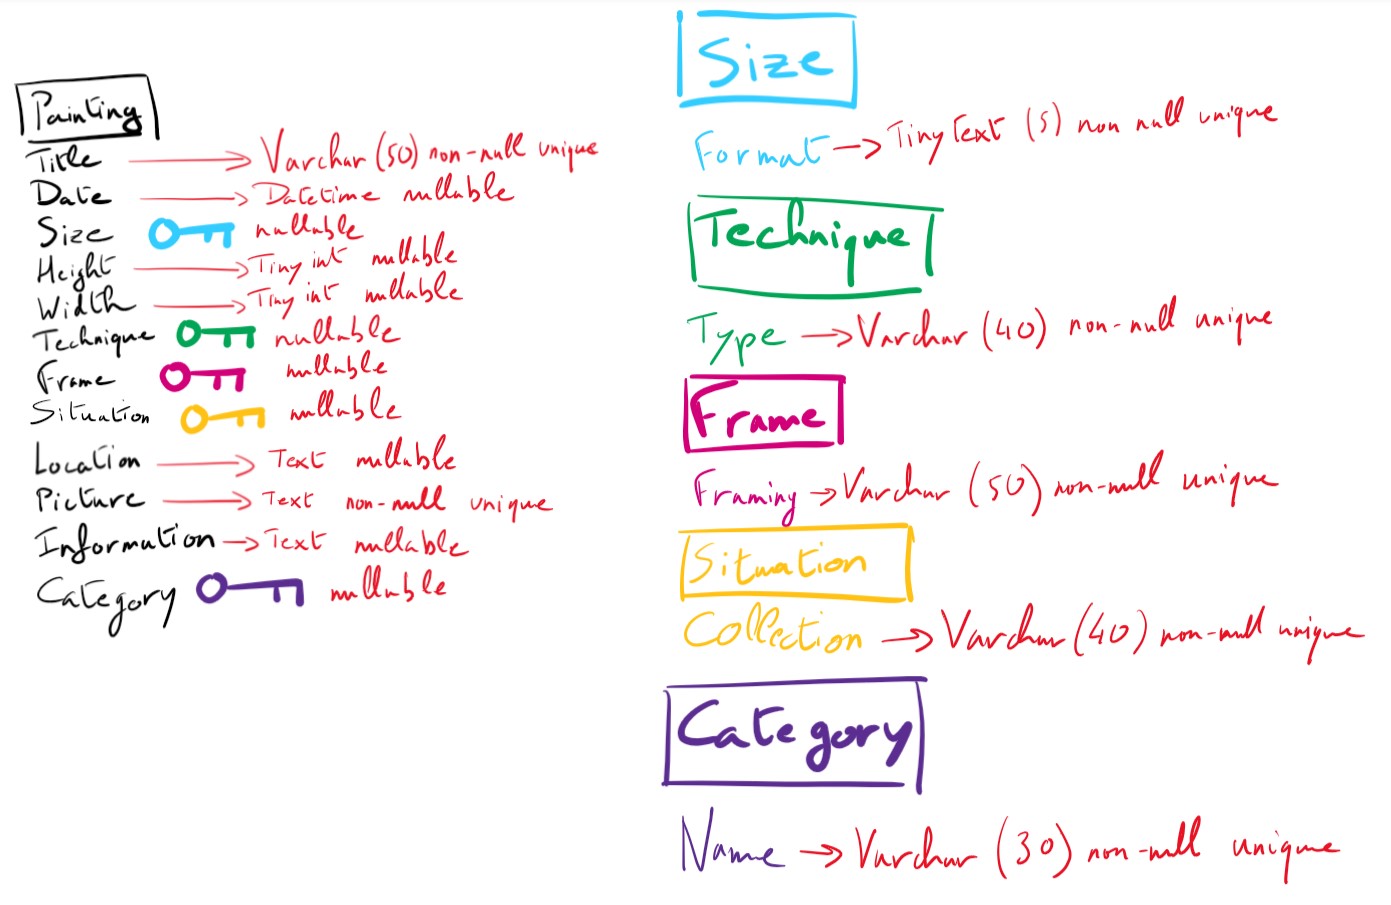 Painting
Title → Varchar (50) non-null unique
Date → Datetime nullable
Size nullable
Height → Tiny int nullable
Width → Tiny int nullable
Technique nullable
Frame nullable
Situation nullable
Location → Text nullable
Picture → Text non-null unique
Information → Text nullable
Category nullable
Size
Format → Tiny Text (5) non null unique
Technique
Type → Varchar (40) non-null unique
Frame
Framing → Varchar (50) non-null unique
Situation
Collection → Varchar (40) non-null unique
Category
Name → Varchar (30) non-null unique